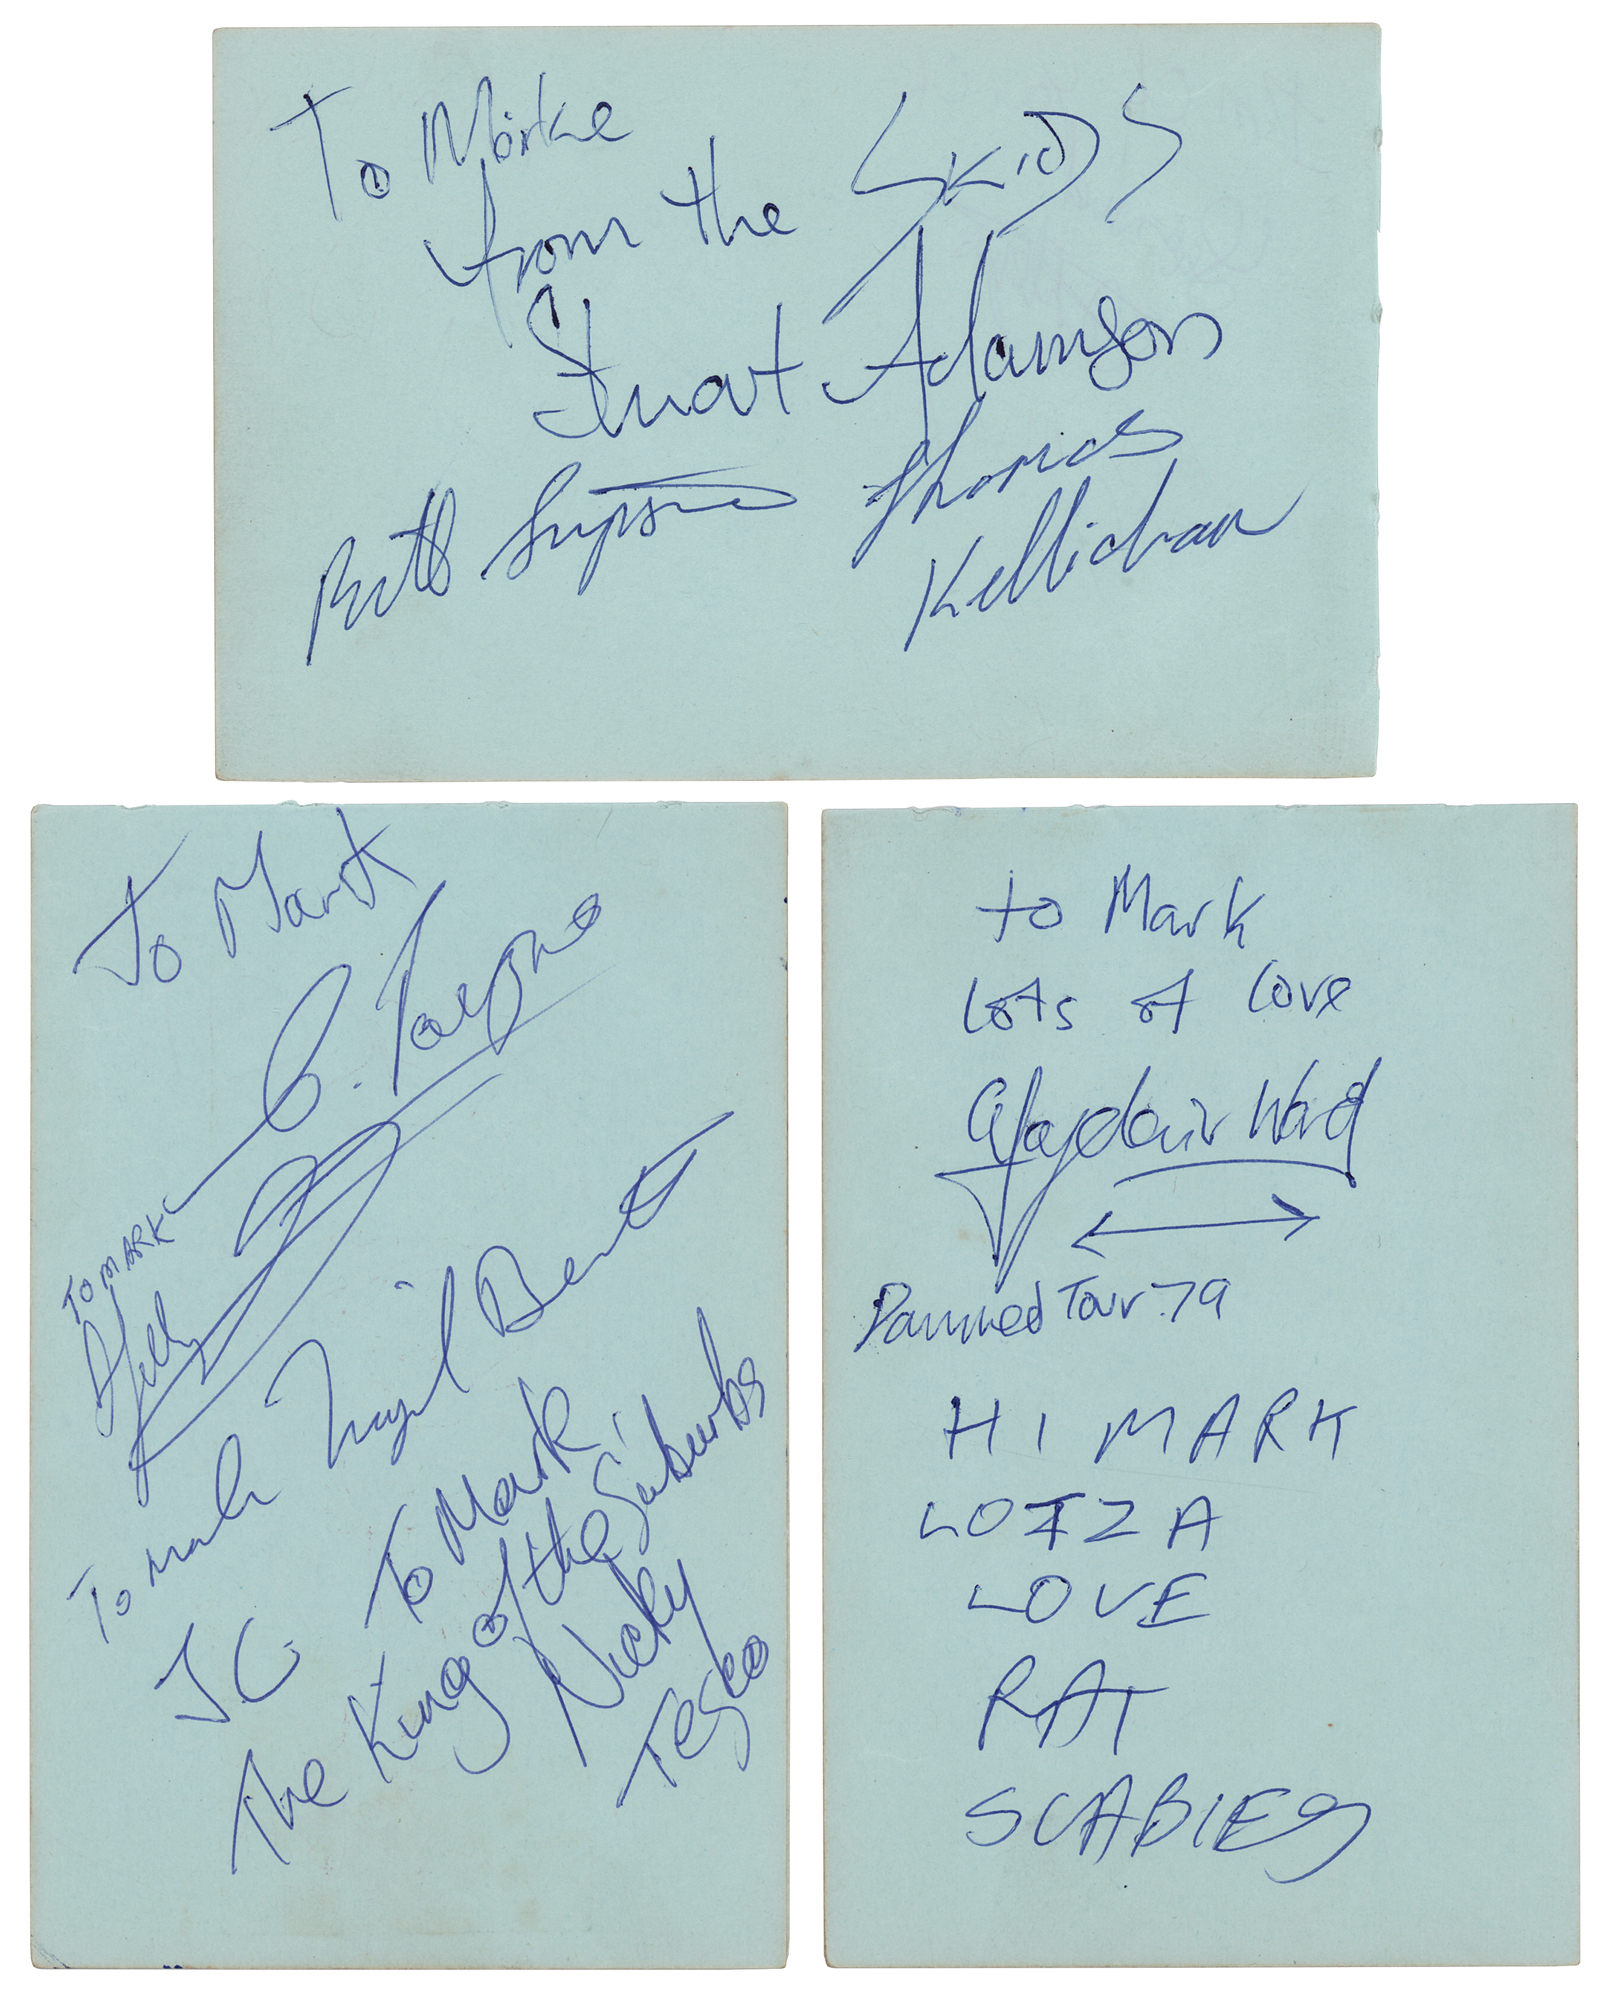 To Marke
from the SKIDS
Stuart Adamson
Thomas
Kellichan
To Mark
To MARK
Nigel Benett
To Mark
To Mark
The King of the Suburbs
JC
Nicky
Tesco
to Mark
lots of love
Alasdair Ward
Damned Tour 79
HI MARK
LOTZA
LOVE
RAT
SCABIES